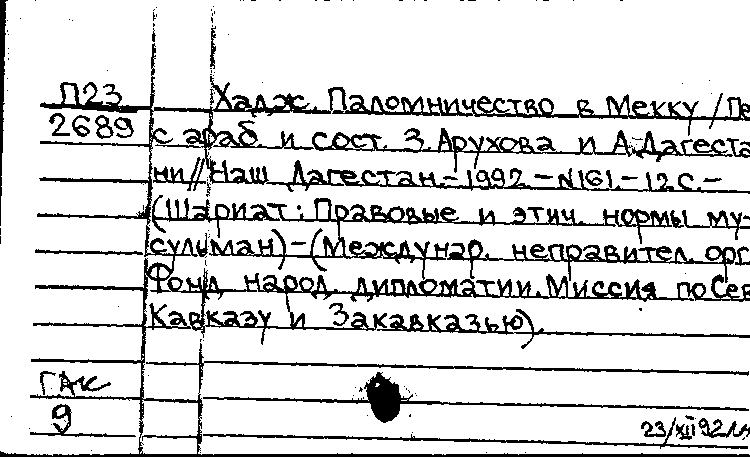 П23 Хадж. Паломничество в Мекку / Пе
2689 с араб. и сост. З. Арухова и А. Дагеста
ни // Наш Дагестан. - 1992. - N161. - 12 с. -
(Шариат: Правовые и этич. нормы му-
сульман) - (Междунар. неправител. орг
Фонд народ. дипломатии. Миссия по Сев
Кавказу и Закавказью).
ГАК
9
23/XII 92